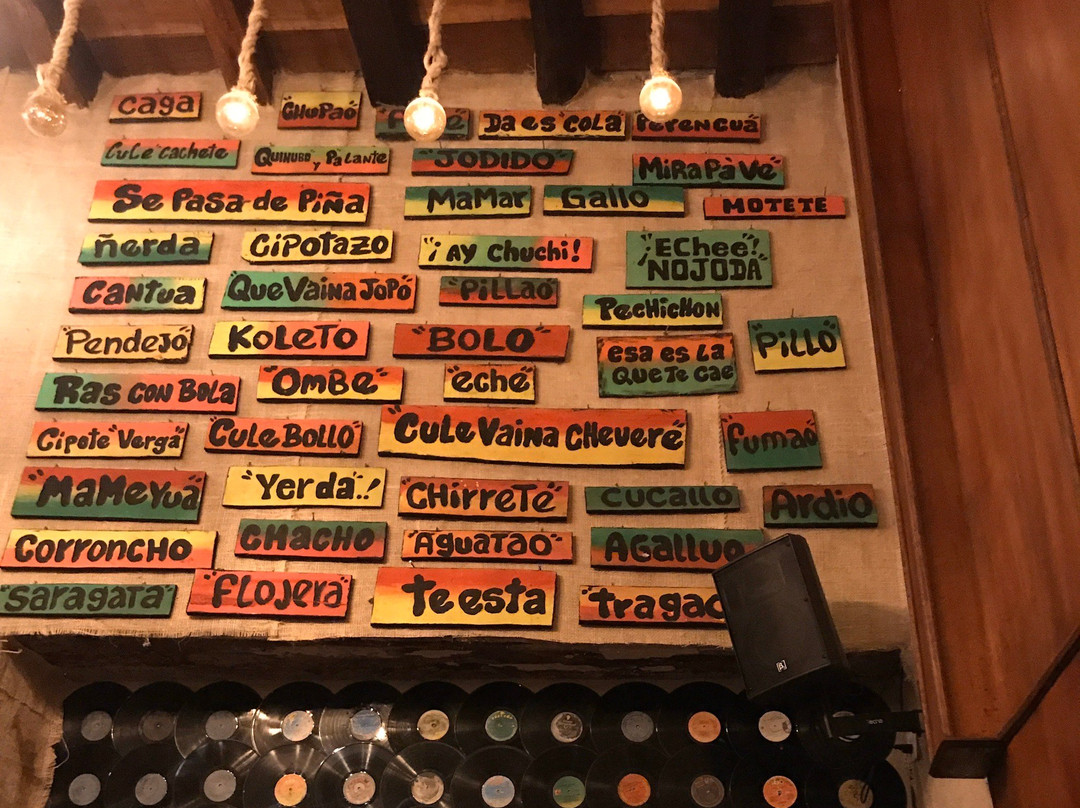 Caga
"CHUPAO"
Da es "COLA"
PerenCuá
CULe"cachete
QUIHUBO y Pa'lante
"JODIDO"
MiraPàVe"
Se Pasa de Piña
MaMar
Gallo
MOTETE
ñerda
CiPOTAZO
"¡AY Chuchi!
¡ECHee!
NOJODA
CanTua
QueVaina JOPO
"PiLLaO"
PeCHiCHON
"Pendejo"
KOLeTO
"BOLO"
esa es La
Que Te Cae
"PiLLO"
Ras con Bola
"OmBe"
"eche"
Cipote"Verga"
"CULeBOLLO"
"CULe Vaina CHevere"
"fumao"
"MaMeYua"
"Yerda"..!
"CHirreTe"
CUCaLLO
Ardio
Corroncho
CHacHO
"AguaTao"
AGalluo
"saragata"
"FLOJera"
Te esta
"tragao